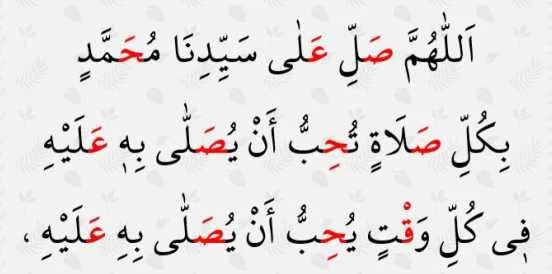 اَللّٰهُمَّ صَلِّ عَلٰى سَيِّدِنَا مُحَمَّدٍ
بِكُلِّ صَلَاةٍ تُحِبُّ أَنْ يُصَلّٰى بِهٖ عَلَيْهِ
فِى كُلِّ وَقْتٍ يُحِبُّ أَنْ يُصَلّٰى بِهِ عَلَيْهِ ،